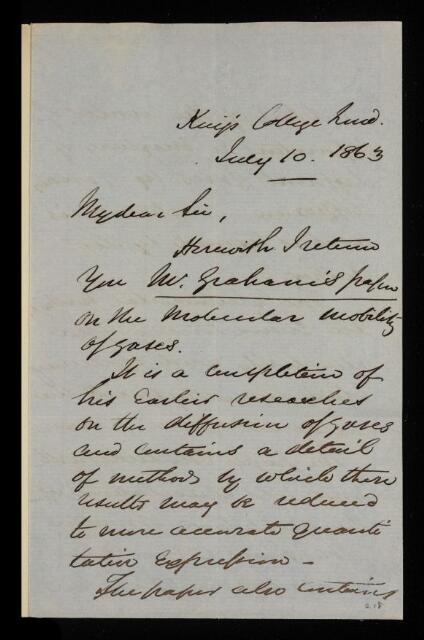 King's College Lond.
July 10. 1863
My dear Sir,
Herewith I return
you Mr. Graham's paper
on the Molecular mobility
of gases.
It is a completion of
his Earlier researches
on the diffusion of gases
and contains a detail
of methods by which these
results may be reduced
to more accurate quanti
tative Expression –
The paper also contains
218